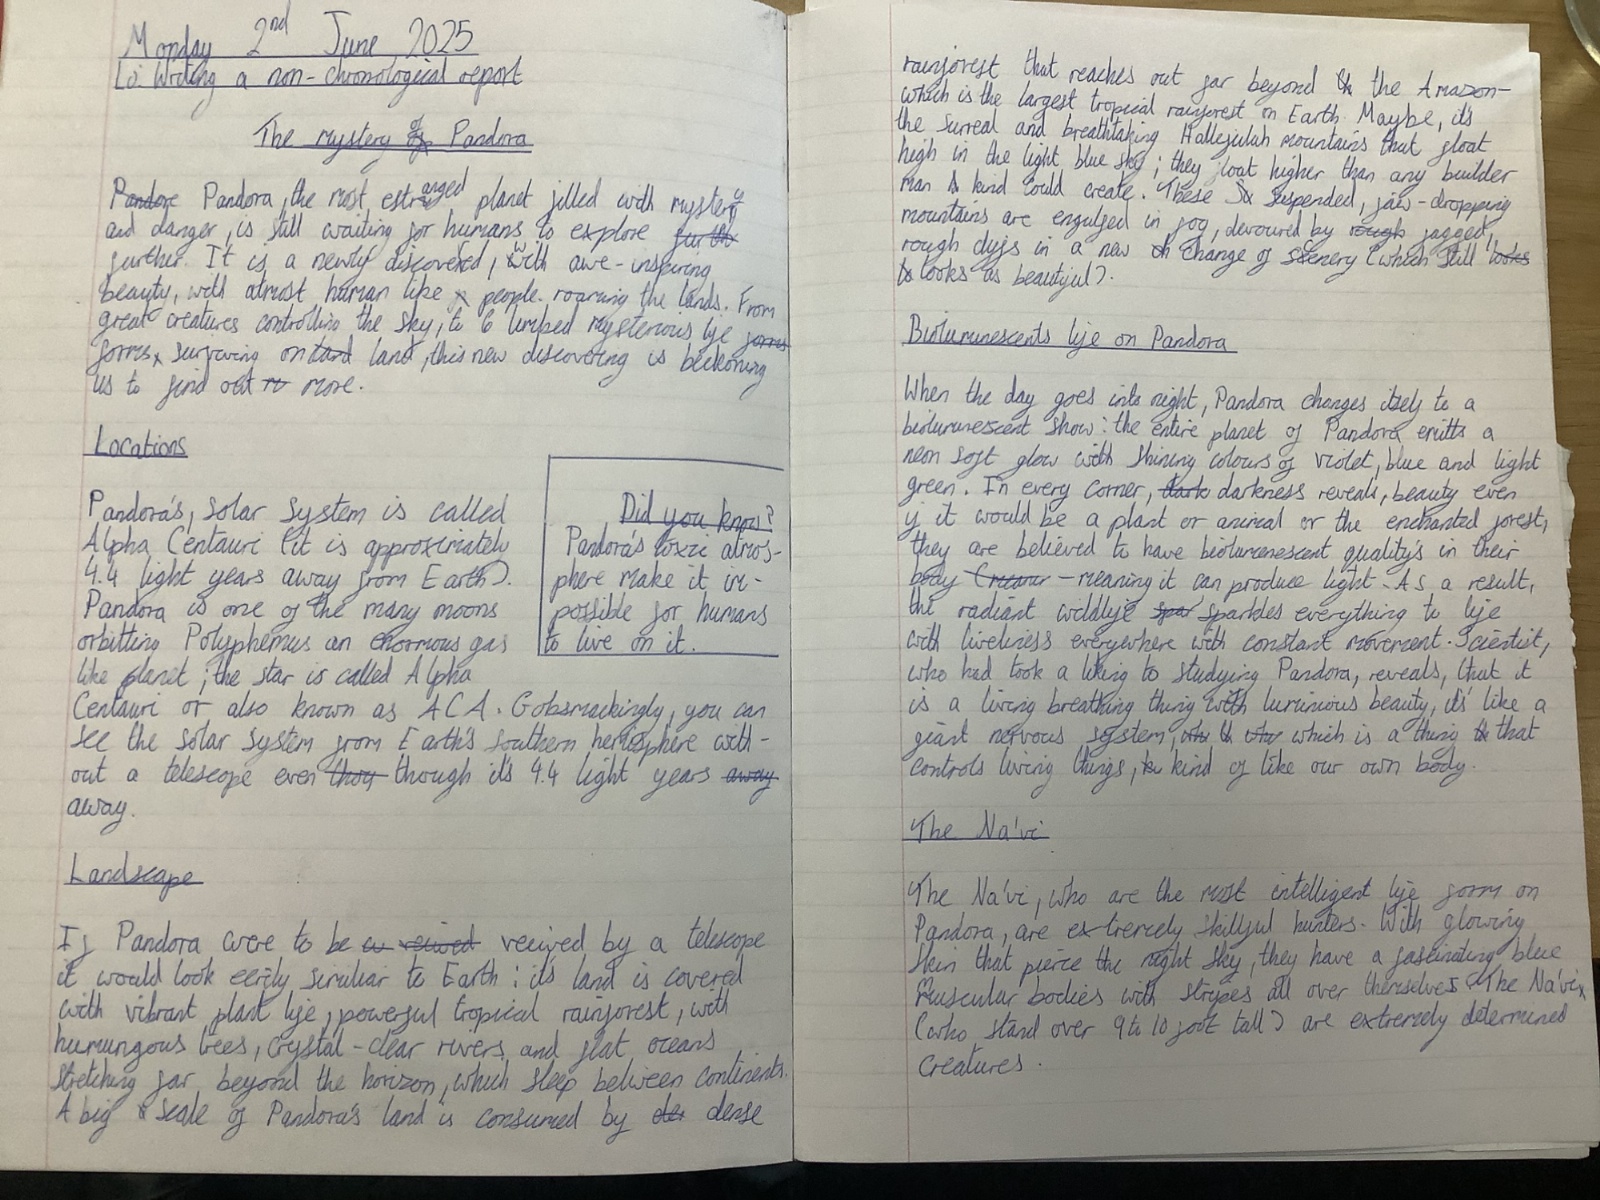 Monday 2nd June 2025
Lo: Writing a non-chronological report
The mystery of Pandora
Pandora, the most estranged planet filled with mystery
and danger, is still waiting for humans to explore
further. It is a newly discovered, with awe-inspiring
beauty, with atmost human like people roaming the lands. From
great creatures controlling the sky, to 6 limbed mysterious life
forms, surviving on land, this new discovering is beckoning
us to find out more.
Locations
Pandora's, solar system is called
Alpha Centauri (it is approximately
4.4 light years away from Earth).
Pandora is one of the many moons
orbitting Polyphemus an enormous gas
like planet; the star is called Alpha
Centauri or also known as ACA. Gobsmackingly, you can
see the solar system from Earth's southern hemisphere with-
out a telescope even though it's 4.4 light years
away.
Did you know?
Pandora's toxic atmos-
phere make it im-
possible for humans
to live on it.
Landscape
If Pandora were to be veiwed by a telescope
it would look eerily similiar to Earth: it's land is covered
with vibrant plant life, powerful tropical rainforest, with
humungous trees, crystal-clear rivers and flat oceans
stretching far beyond the horizon, which sleep between continents.
A big scale of Pandora's land is consumed by dense
rainforest that reaches out far beyond the Amazon-
which is the largest tropical rainforest on Earth. Maybe, it's
the surreal and breathtaking Hallejulah mountains that float
high in the light blue sky; they float higher than any builder
man kind could create. These suspended, jaw-dropping
mountains are engulfed in fog, devoured by jagged,
rough cliffs in a new change of scenery (which still
looks as beautiful).
Bioluminescents life on Pandora
When the day goes into night, Pandora changes itself to a
bioluminescent show: the entire planet of Pandora emitts a
neon soft glow with shining colours of violet, blue and light
green. In every corner, darkness reveals, beauty even
if it would be a plant or animal or the enchanted forest,
they are believed to have bioluminescent quality's in their
body - meaning it can produce light. As a result,
the radiant wildlife sparkles everything to life
with liveliness everywhere with constant movement. Scientist,
who had took a liking to studying Pandora, reveals, that it
is a living breathing thing with luminious beauty, it's like a
giant nervous system, which is a thing that
controls living things, kind of like our own body.
The Na'vi
The Na'vi, who are the most intelligent life form on
Pandora, are extremely skillful hunters. With glowing
skin that pierce the night sky, they have a fascinating blue
muscular bodies with stripes all over themselves. The Na'vi
(who stand over 9 to 10 foot tall) are extremely determined
creatures.